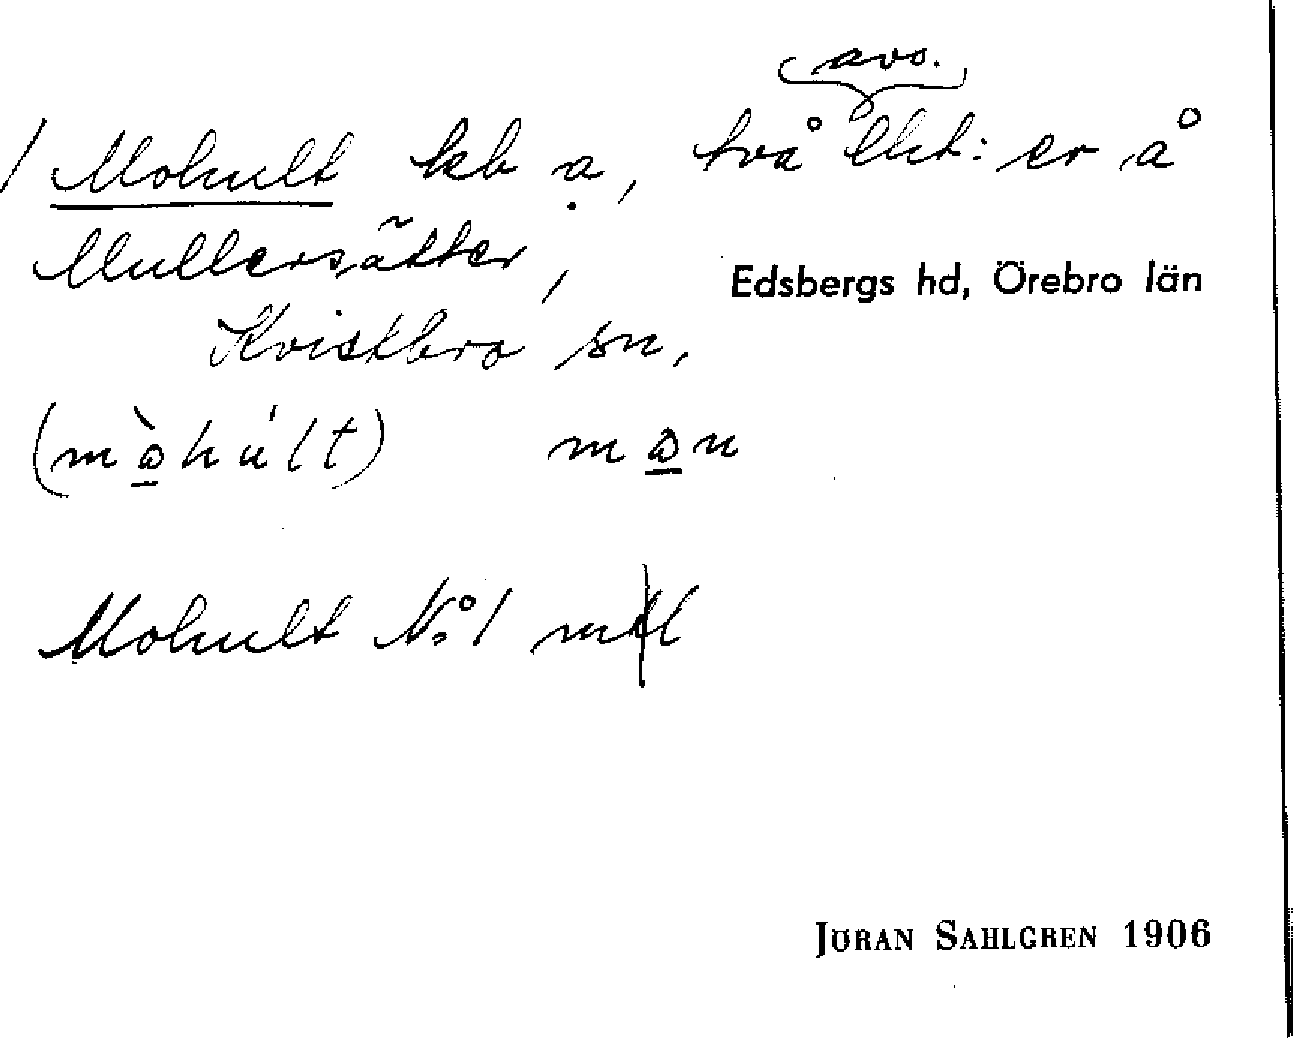 avs.
1 Mohult kb a, två lht:er å
Mullersätter,
Edsbergs hd, Örebro län
Kvistbro sn,
(mò̲húlt) mo̲n
Mohult No 1
JÖRAN SAHLGREN 1906